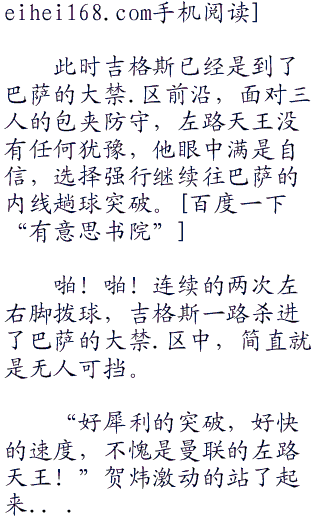 eihei168.com手机阅读]
此时吉格斯已经是到了
巴萨的大禁.区前沿，面对三
人的包夹防守，左路天王没
有任何犹豫，他眼中满是自
信，选择强行继续往巴萨的
内线趟球突破。[百度一下
“有意思书院”]
啪！啪！连续的两次左
右脚拨球，吉格斯一路杀进
了巴萨的大禁.区中，简直就
是无人可挡。
“好犀利的突破，好快
的速度，不愧是曼联的左路
天王！”贺炜激动的站了起
来...